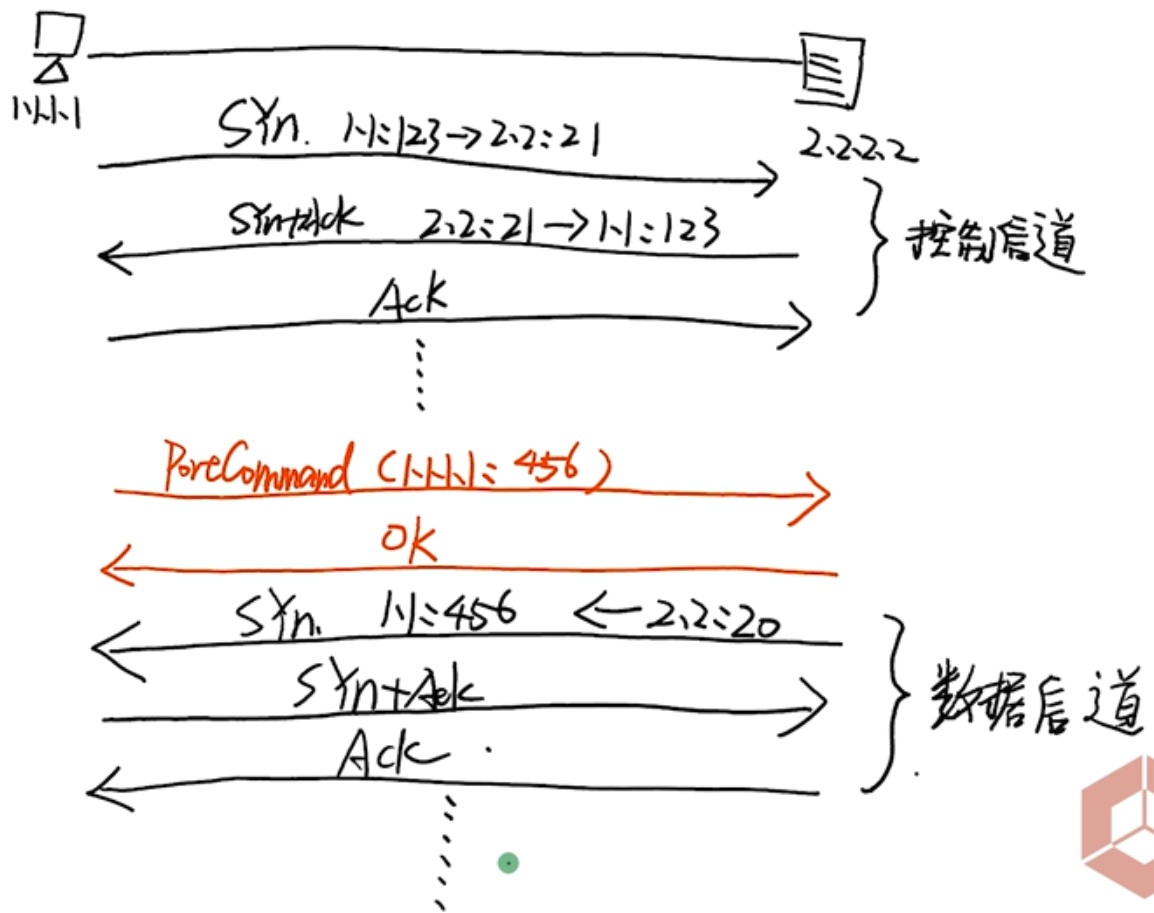 1.1.1.1
2.2.2.2
SYn. 1.1:123→2.2:21
SYn+Ack 2.2:21→1.1:123
控制信道
Ack
PoreCommand (1.1.1.1:456)
OK
SYn. 1.1:456 ←2.2:20
SYn+Ack
数据信道
Ack